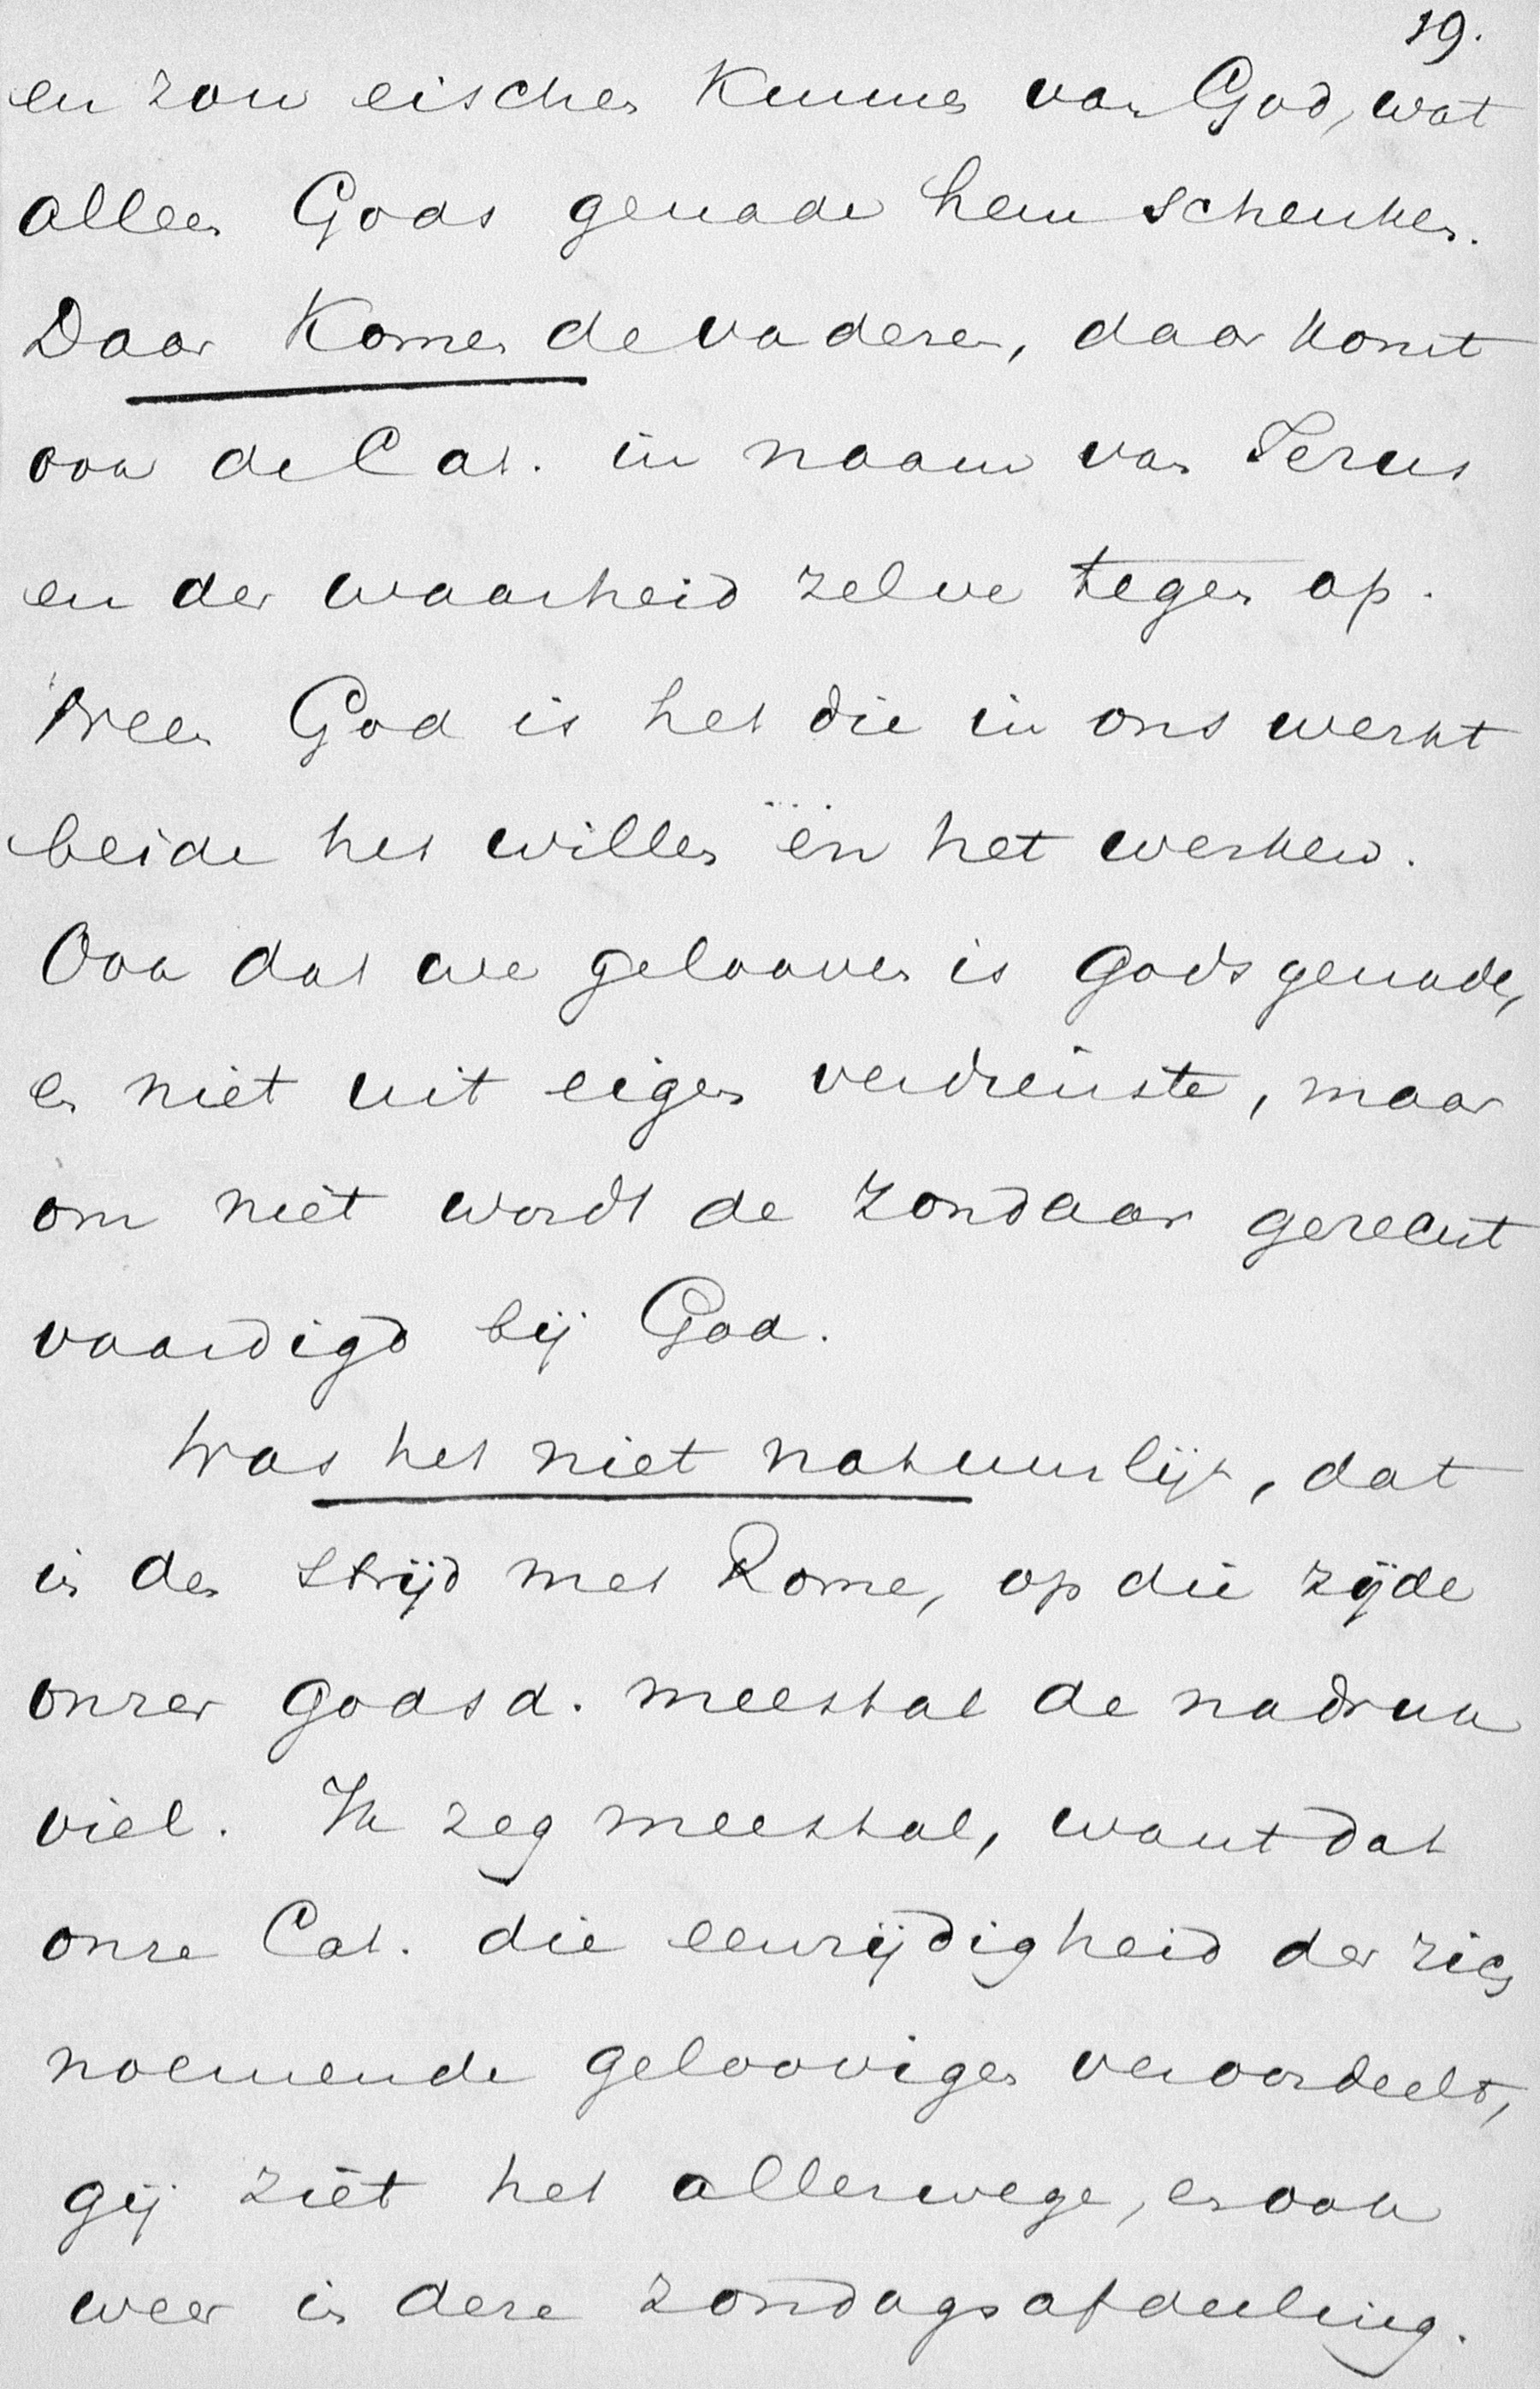 19.
en zou eischen kunnen van God, wat
alleen Gods genade hem schenken.
Daar komen de vaderen, daar komt
ook de Cat. in naam van Jezus
en der waarheid zelve tegen op.
Neen God is het die in ons werkt
beide het willen èn het werken.
Ook dat we gelooven is Gods genade,
en niet uit eigen verdienste, maar
om niet wordt de zondaar gerecht
vaardigd bij God.
Was het niet natuurlijk, dat
in den strijd met Rome, op die zijde
onzer godsd. meestal de nadruk
viel. Ik zeg meestal, want dat
onze Cat. die eenzijdigheid der zich
noemende geloovigen veroordeelt,
gij ziet het allerwege, en ook
weer in deze zondagsafdeeling.